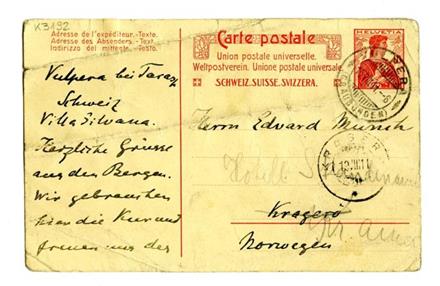 K3192
Adresse de l'expéditeur.-Texte.
Adresse des Absenders.-Text.
Indirizzo del mittente.-Testo.
Carte postale
Union postale universelle.
Weltpostverein. Unione postale universale.
SCHWEIZ. SUISSE. SVIZZERA.
HELVETIA
Vulpera bei Tarasp
Schweiz
Villa Silvana.
Herzliche Grüsse
aus den Bergen.
Wir gebrauchen
hier die Kur und
freuen uns des
Herrn Edvard Munch
Hotell
Kragerø
Norwegen